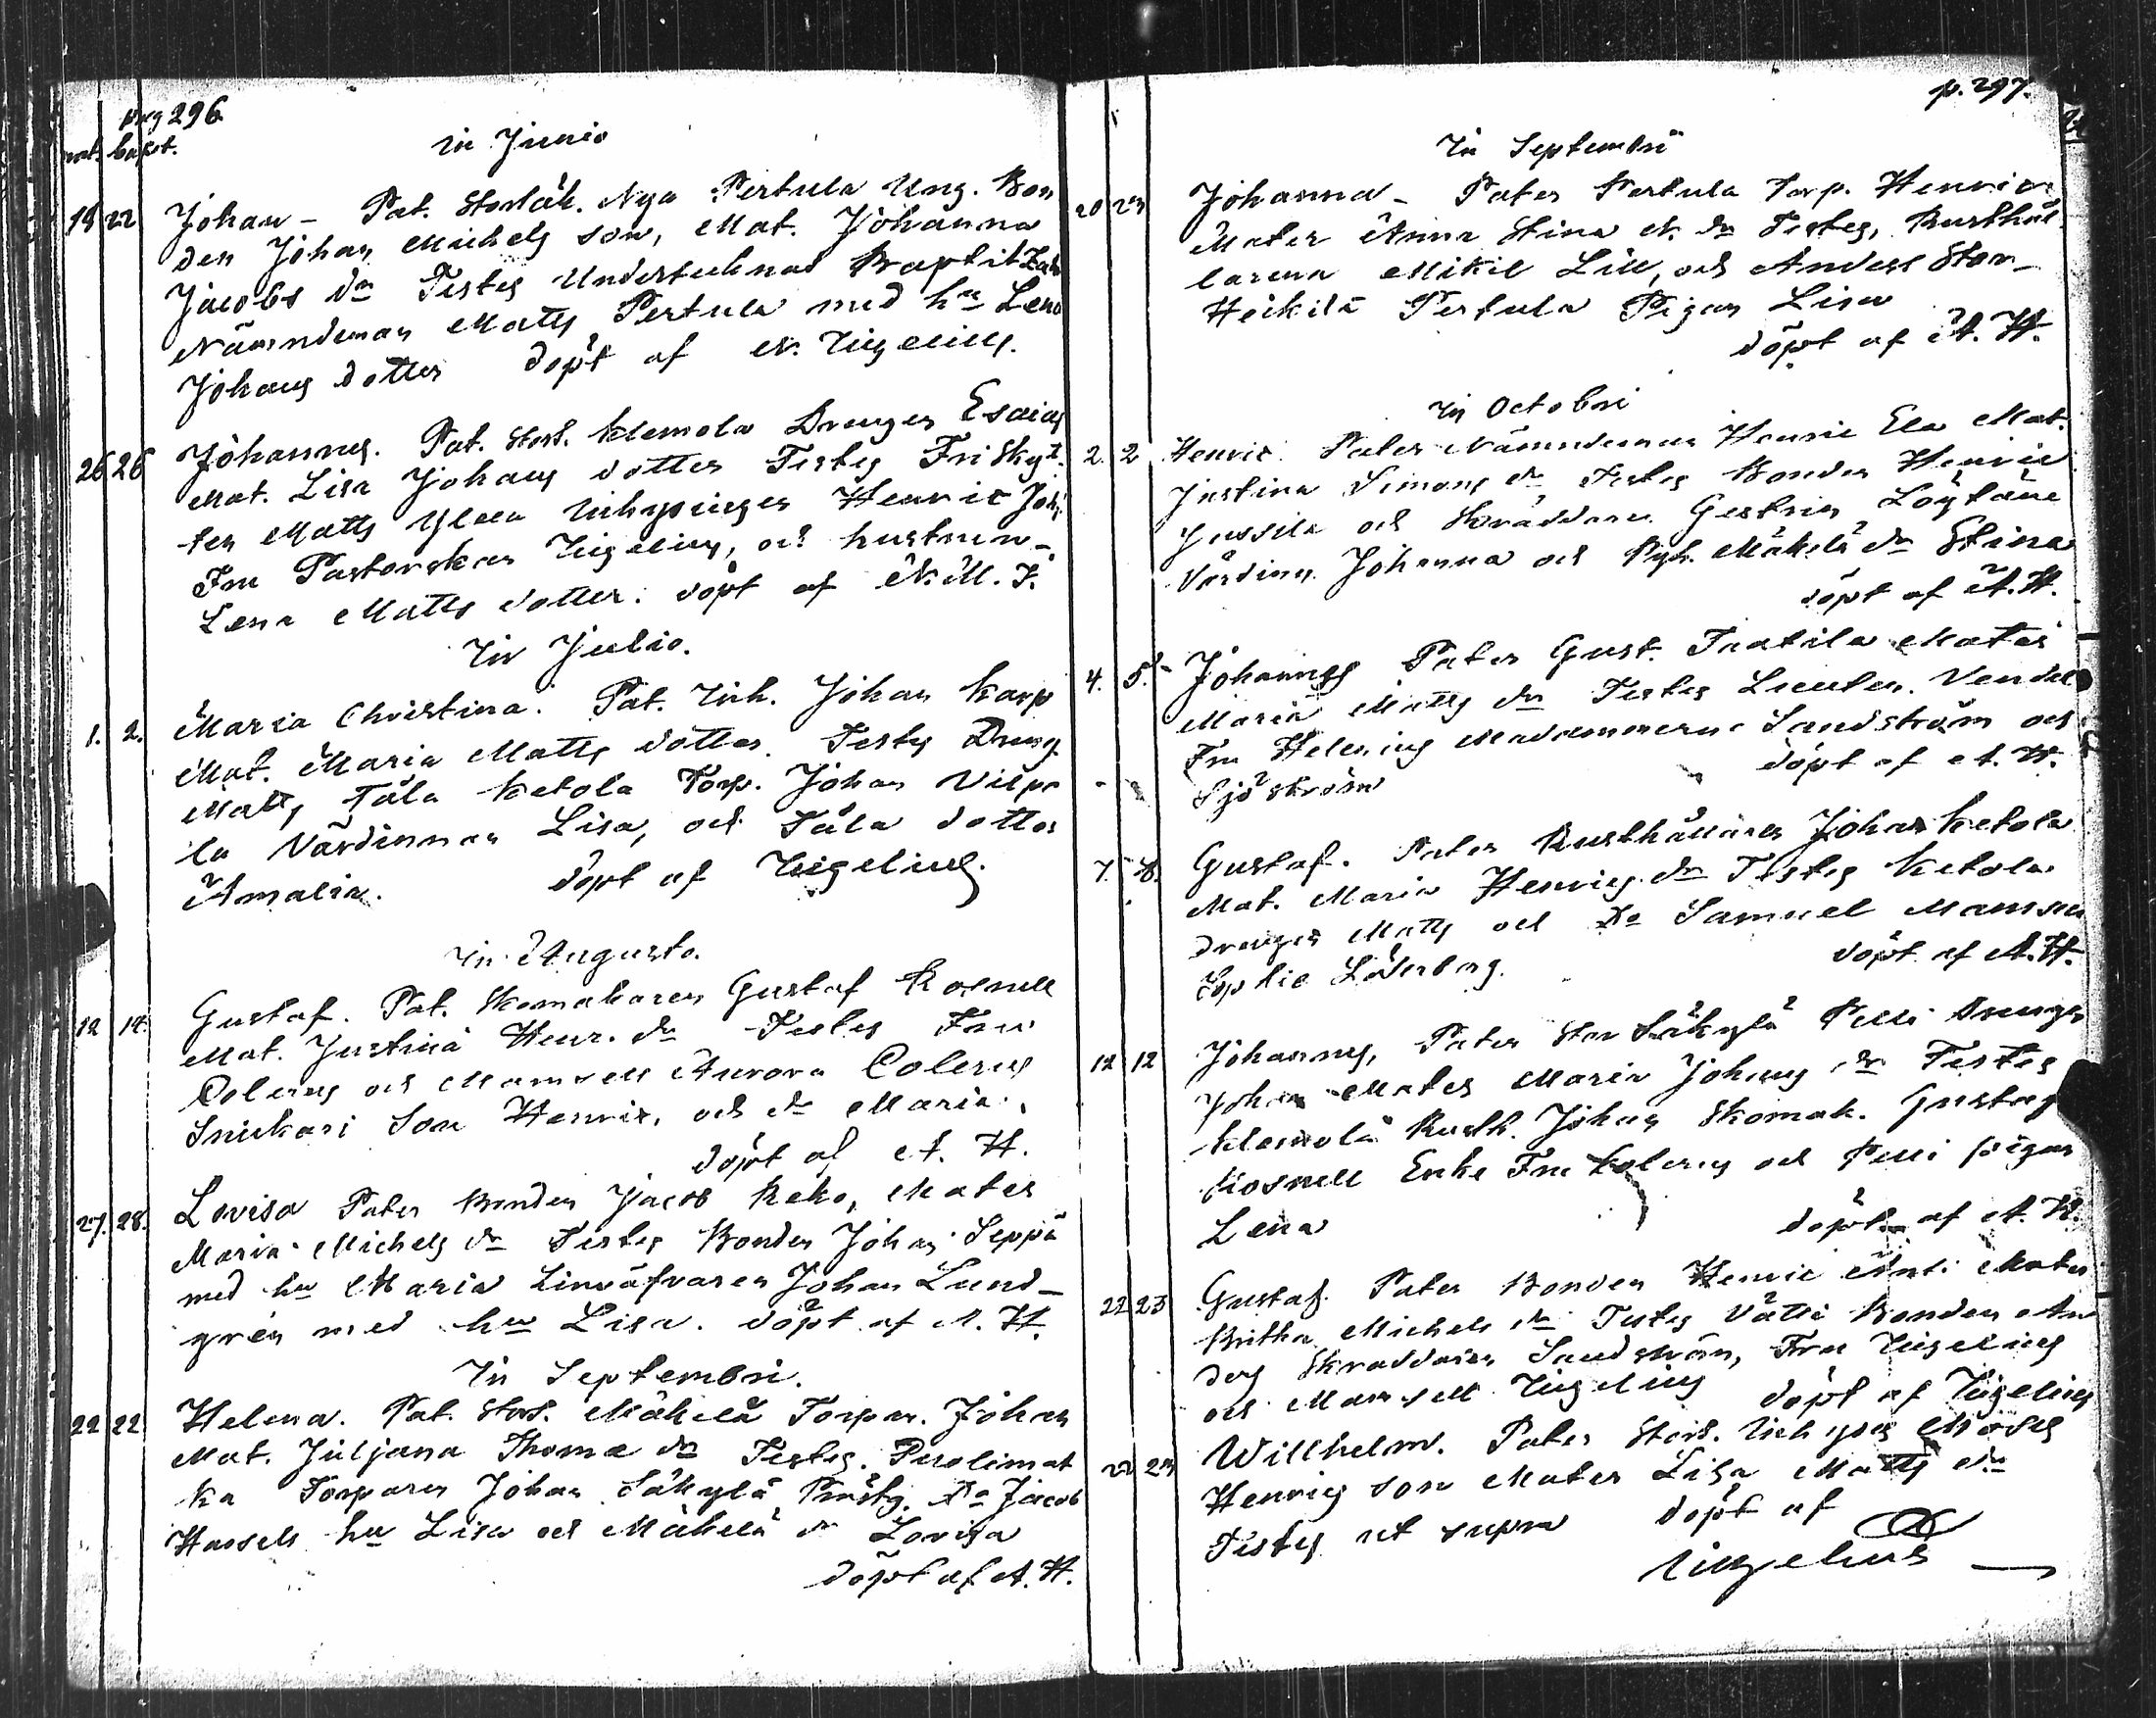 pag 296.
nat. bapt.
in Junio
19 22 Johan – Pat. Storsäk. Nya Pertula Ung. Bon
den Johan Michels son, Mat. Johanna
Jacobs dr Testes Undertecknad Baptitzat
Nämndeman Matts Pertula med hu Lena
Johans dotter döpt af N. Ingelius.
26 26 Johannes. Pat. Stors. Klemola Drengen Esaias
Mat. Lisa Johans dotter Testes Fri Skyt-
ten Matts Inhysinges Henric Joh
Fru Pastorskan Ingelius, och hustrun
Lena Matts dotter. döpt af N. M. I.
In Julio.
1. 2. Maria Christina. Pat. Inh. Johan Karp
Mat. Maria Matts dotter. Testes Dreng
Matts Täla Ketola Torp. Johan Vilpo
la Värdinnan Lisa, och Täla dotter
Amalia. döpt af Ingelius.
in Augusto.
12 14. Gustaf. Pat. Skomakaren Gustaf Rosnell
Mat. Justina Henr. dr Testes Fru
Colerus och Mamsell Aurora Colerus
Snickari Son Henric, och dr Maria.
döpt af A. H.
27. 28. Lovisa Pater Bonden Jacob Reko, Mater
Maria Michels dr Testes Bonden Johan Seppä
med hu Maria Linväfvaren Johan Lund-
grén med hu Lisa. döpt af A. H.
In Septembri.
22 22 Helena. Pat. Stors. Mäkelä Torpar. Johan
Mat. Juljana Thomæ dr Testes. Puolimat
ka Torparen Johan Säkylä Prästg. Do Jacob
hu Lisa och Mäkelä dr Lovisa
döpt af A. H.
p. 297.
In Septembri
20 Johanna – Pater Pertula Torp. Henric
Mater Anna Stina N. dr Testes, Rusthål
larena Mikil Lill, och Anders Stor-
Heikilä Pertula Pigan Lisa
döpt af A. H.
In Octobri
2. 2 Henric Pater Nämndeman Henric Ela Mat.
Justina Simons dr Testes Bonden Henric
Jussila och Skräddare Gestrin Löytäne
Värdinn. Johanna och Pyh. Mäkelä dr Stina
döpt af A. H.
4. 5. Johannes Pater Gust. Tratila Mater
Maria Matts dr Testes Lieuten. Vendel
Fru Helenius Madammerne Sandström och
Sjöström döpt af A. H.
7. 8. Gustaf. Pater Rusthållaren Johan Ketola
Mat. Maria Henrics dr Testes Ketola
drengen Matts och Do Samuel Mamsell
Sophie Söderborg. döpt af A. H.
12 12 Johannes, Pater Stor Säkylä Pelli Drengen
Johan Mater Maria Johans dr Testes
Klemola Rusth. Johan Skomak. Gustaf
Rosnell Enke Fru Colerus och Pelli pigan
Lena döpt af A. H.
22 23 Gustaf. Pater Bonden Henric Anti Mater
Britha Michels dr Testes Vätti Bonden An
ders Skraddaren Sandström, Fru Ingelius
och Mamsell Ingelius döpt af Ingelius
Willhelm. Pater Stors. Inhyses Moses
Henrics son Mater Lisa Matts dr
Testes ut supra döpt af
Ingelius